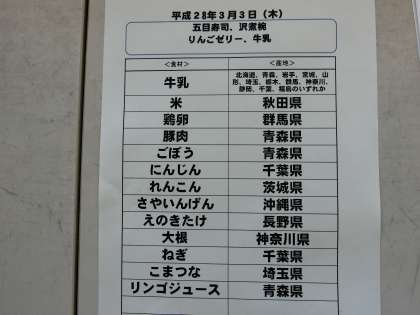 平成28年3月3日（木）
五目寿司、沢煮椀
りんごゼリー、牛乳
＜食材＞ ＜産地＞
牛乳 北海道、青森、岩手、宮城、山
形、埼玉、栃木、群馬、神奈川、
静岡、千葉、福島のいずれか
米 秋田県
鶏卵 群馬県
豚肉 青森県
ごぼう 青森県
にんじん 千葉県
れんこん 茨城県
さやいんげん 沖縄県
えのきたけ 長野県
大根 神奈川県
ねぎ 千葉県
こまつな 埼玉県
リンゴジュース 青森県